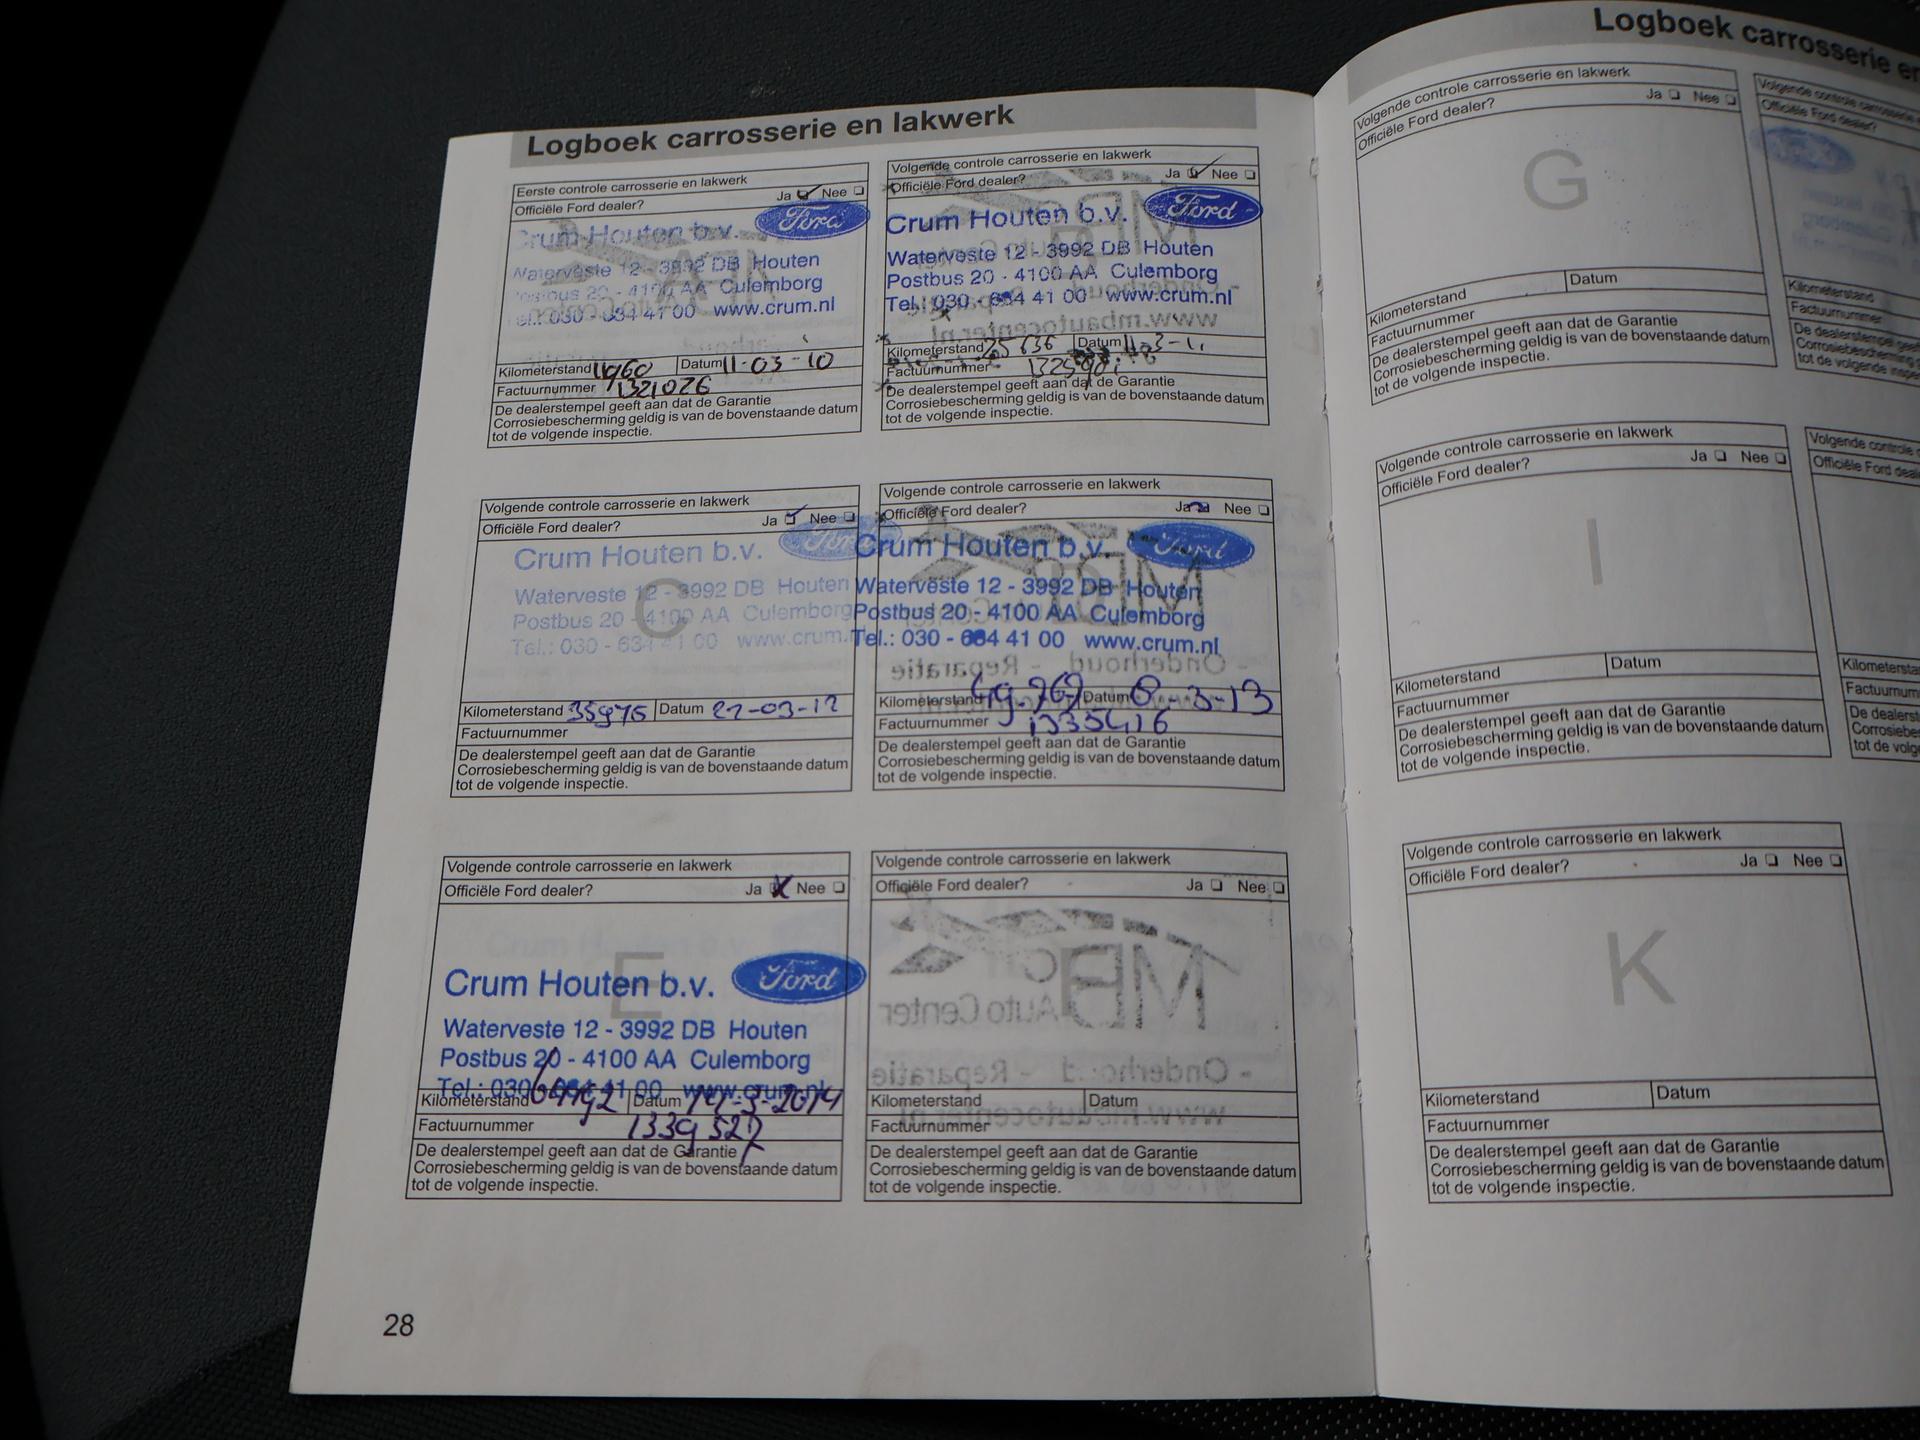 Logboek carrosserie en lakwerk
Eerste controle carrosserie en lakwerk
Officiële Ford dealer? Ja Nee
Ford
Crum Houten b.v.
Waterveste 12 - 3992 DB Houten
Postbus 20 - 4100 AA Culemborg
Tel.: 030 - 634 41 00 www.crum.nl
Kilometerstand Datum 11-03-10
Factuurnummer 1321026
De dealerstempel geeft aan dat de Garantie
Corrosiebescherming geldig is van de bovenstaande datum
tot de volgende inspectie.
Volgende controle carrosserie en lakwerk
Officiële Ford dealer? Ja Nee
Ford
Crum Houten b.v.
Waterveste 12 - 3992 DB Houten
Postbus 20 - 4100 AA Culemborg
Tel.: 030 - 634 41 00 www.crum.nl
Kilometerstand 25636 Datum
Factuurnummer
De dealerstempel geeft aan dat de Garantie
Corrosiebescherming geldig is van de bovenstaande datum
tot de volgende inspectie.
Volgende controle carrosserie en lakwerk
Officiële Ford dealer? Ja Nee
Ford
Crum Houten b.v.
C
Waterveste 12 - 3992 DB Houten
Postbus 20 - 4100 AA Culemborg
Tel.: 030 - 634 41 00 www.crum.nl
Kilometerstand 35976 Datum 21-03-12
Factuurnummer
De dealerstempel geeft aan dat de Garantie
Corrosiebescherming geldig is van de bovenstaande datum
tot de volgende inspectie.
Volgende controle carrosserie en lakwerk
Officiële Ford dealer? Ja Nee
Ford
Crum Houten b.v.
Waterveste 12 - 3992 DB Houten
Postbus 20 - 4100 AA Culemborg
Tel.: 030 - 634 41 00 www.crum.nl
Kilometerstand 49.767 Datum 8-3-13
Factuurnummer 1335416
De dealerstempel geeft aan dat de Garantie
Corrosiebescherming geldig is van de bovenstaande datum
tot de volgende inspectie.
Volgende controle carrosserie en lakwerk
Officiële Ford dealer? Ja Nee
E
Ford
Crum Houten b.v.
Waterveste 12 - 3992 DB Houten
Postbus 20 - 4100 AA Culemborg
Tel.: 030 - 634 41 00 www.crum.nl
Kilometerstand 64192 Datum 14-3-2014
Factuurnummer 1339527
De dealerstempel geeft aan dat de Garantie
Corrosiebescherming geldig is van de bovenstaande datum
tot de volgende inspectie.
Volgende controle carrosserie en lakwerk
Officiële Ford dealer? Ja Nee
Kilometerstand Datum
Factuurnummer
De dealerstempel geeft aan dat de Garantie
Corrosiebescherming geldig is van de bovenstaande datum
tot de volgende inspectie.
28
Logboek carrosserie en
Volgende controle carrosserie en lakwerk
Officiële Ford dealer? Ja Nee
G
Kilometerstand Datum
Factuurnummer
De dealerstempel geeft aan dat de Garantie
Corrosiebescherming geldig is van de bovenstaande datum
tot de volgende inspectie.
Volgende controle carrosserie
Officiële Ford dealer?
Kilometerstand
Factuurnummer
De dealerstempel
Corrosiebescherming
tot de volgende
Volgende controle carrosserie en lakwerk
Officiële Ford dealer? Ja Nee
I
Kilometerstand Datum
Factuurnummer
De dealerstempel geeft aan dat de Garantie
Corrosiebescherming geldig is van de bovenstaande datum
tot de volgende inspectie.
Volgende controle
Officiële Ford
Volgende controle carrosserie en lakwerk
Officiële Ford dealer? Ja Nee
K
Kilometerstand Datum
Factuurnummer
De dealerstempel geeft aan dat de Garantie
Corrosiebescherming geldig is van de bovenstaande datum
tot de volgende inspectie.